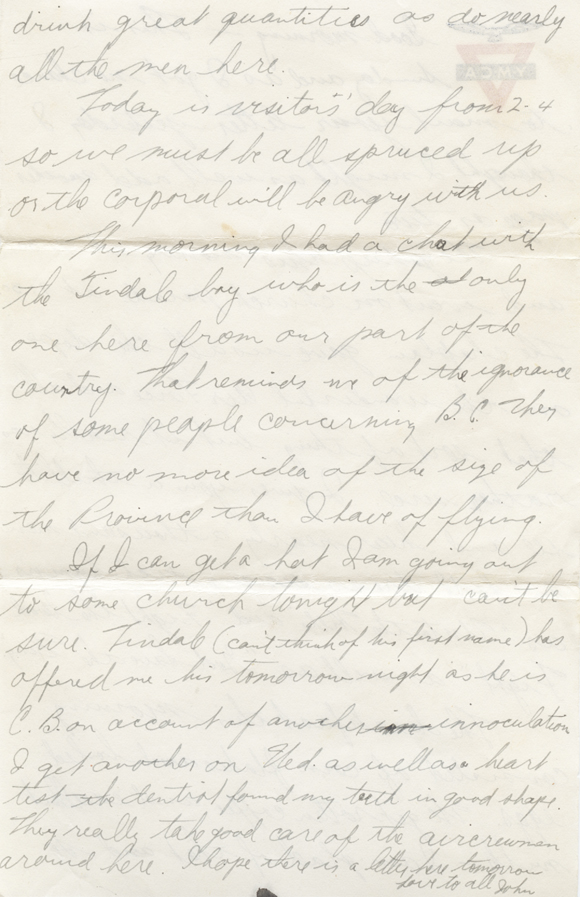 drink great quantities as do nearly
all the men here.
Y.M.C.A.
Today is visitors' day from 2-4
so we must be all spruced up
or the corporal will be angry with us.
This morning I had a chat with
the Tindale boy who is the only
one here from our part of the
country. That reminds me of the ignorance
of some people concerning B.C. They
have no more idea of the size of
the Province than I have of flying.
If I can get a hat I am going out
to some church tonight but can't be
sure. Tindale (can't think of his first name) has
offered me his tomorrow night as he is
C.B. on account of another innoculation
I get another on Wed. as well as a heart
test the dentist found my teeth in good shape.
They really take good care of the aircrewmen
around here. I hope there is a letter here tomorrow
Love to all John